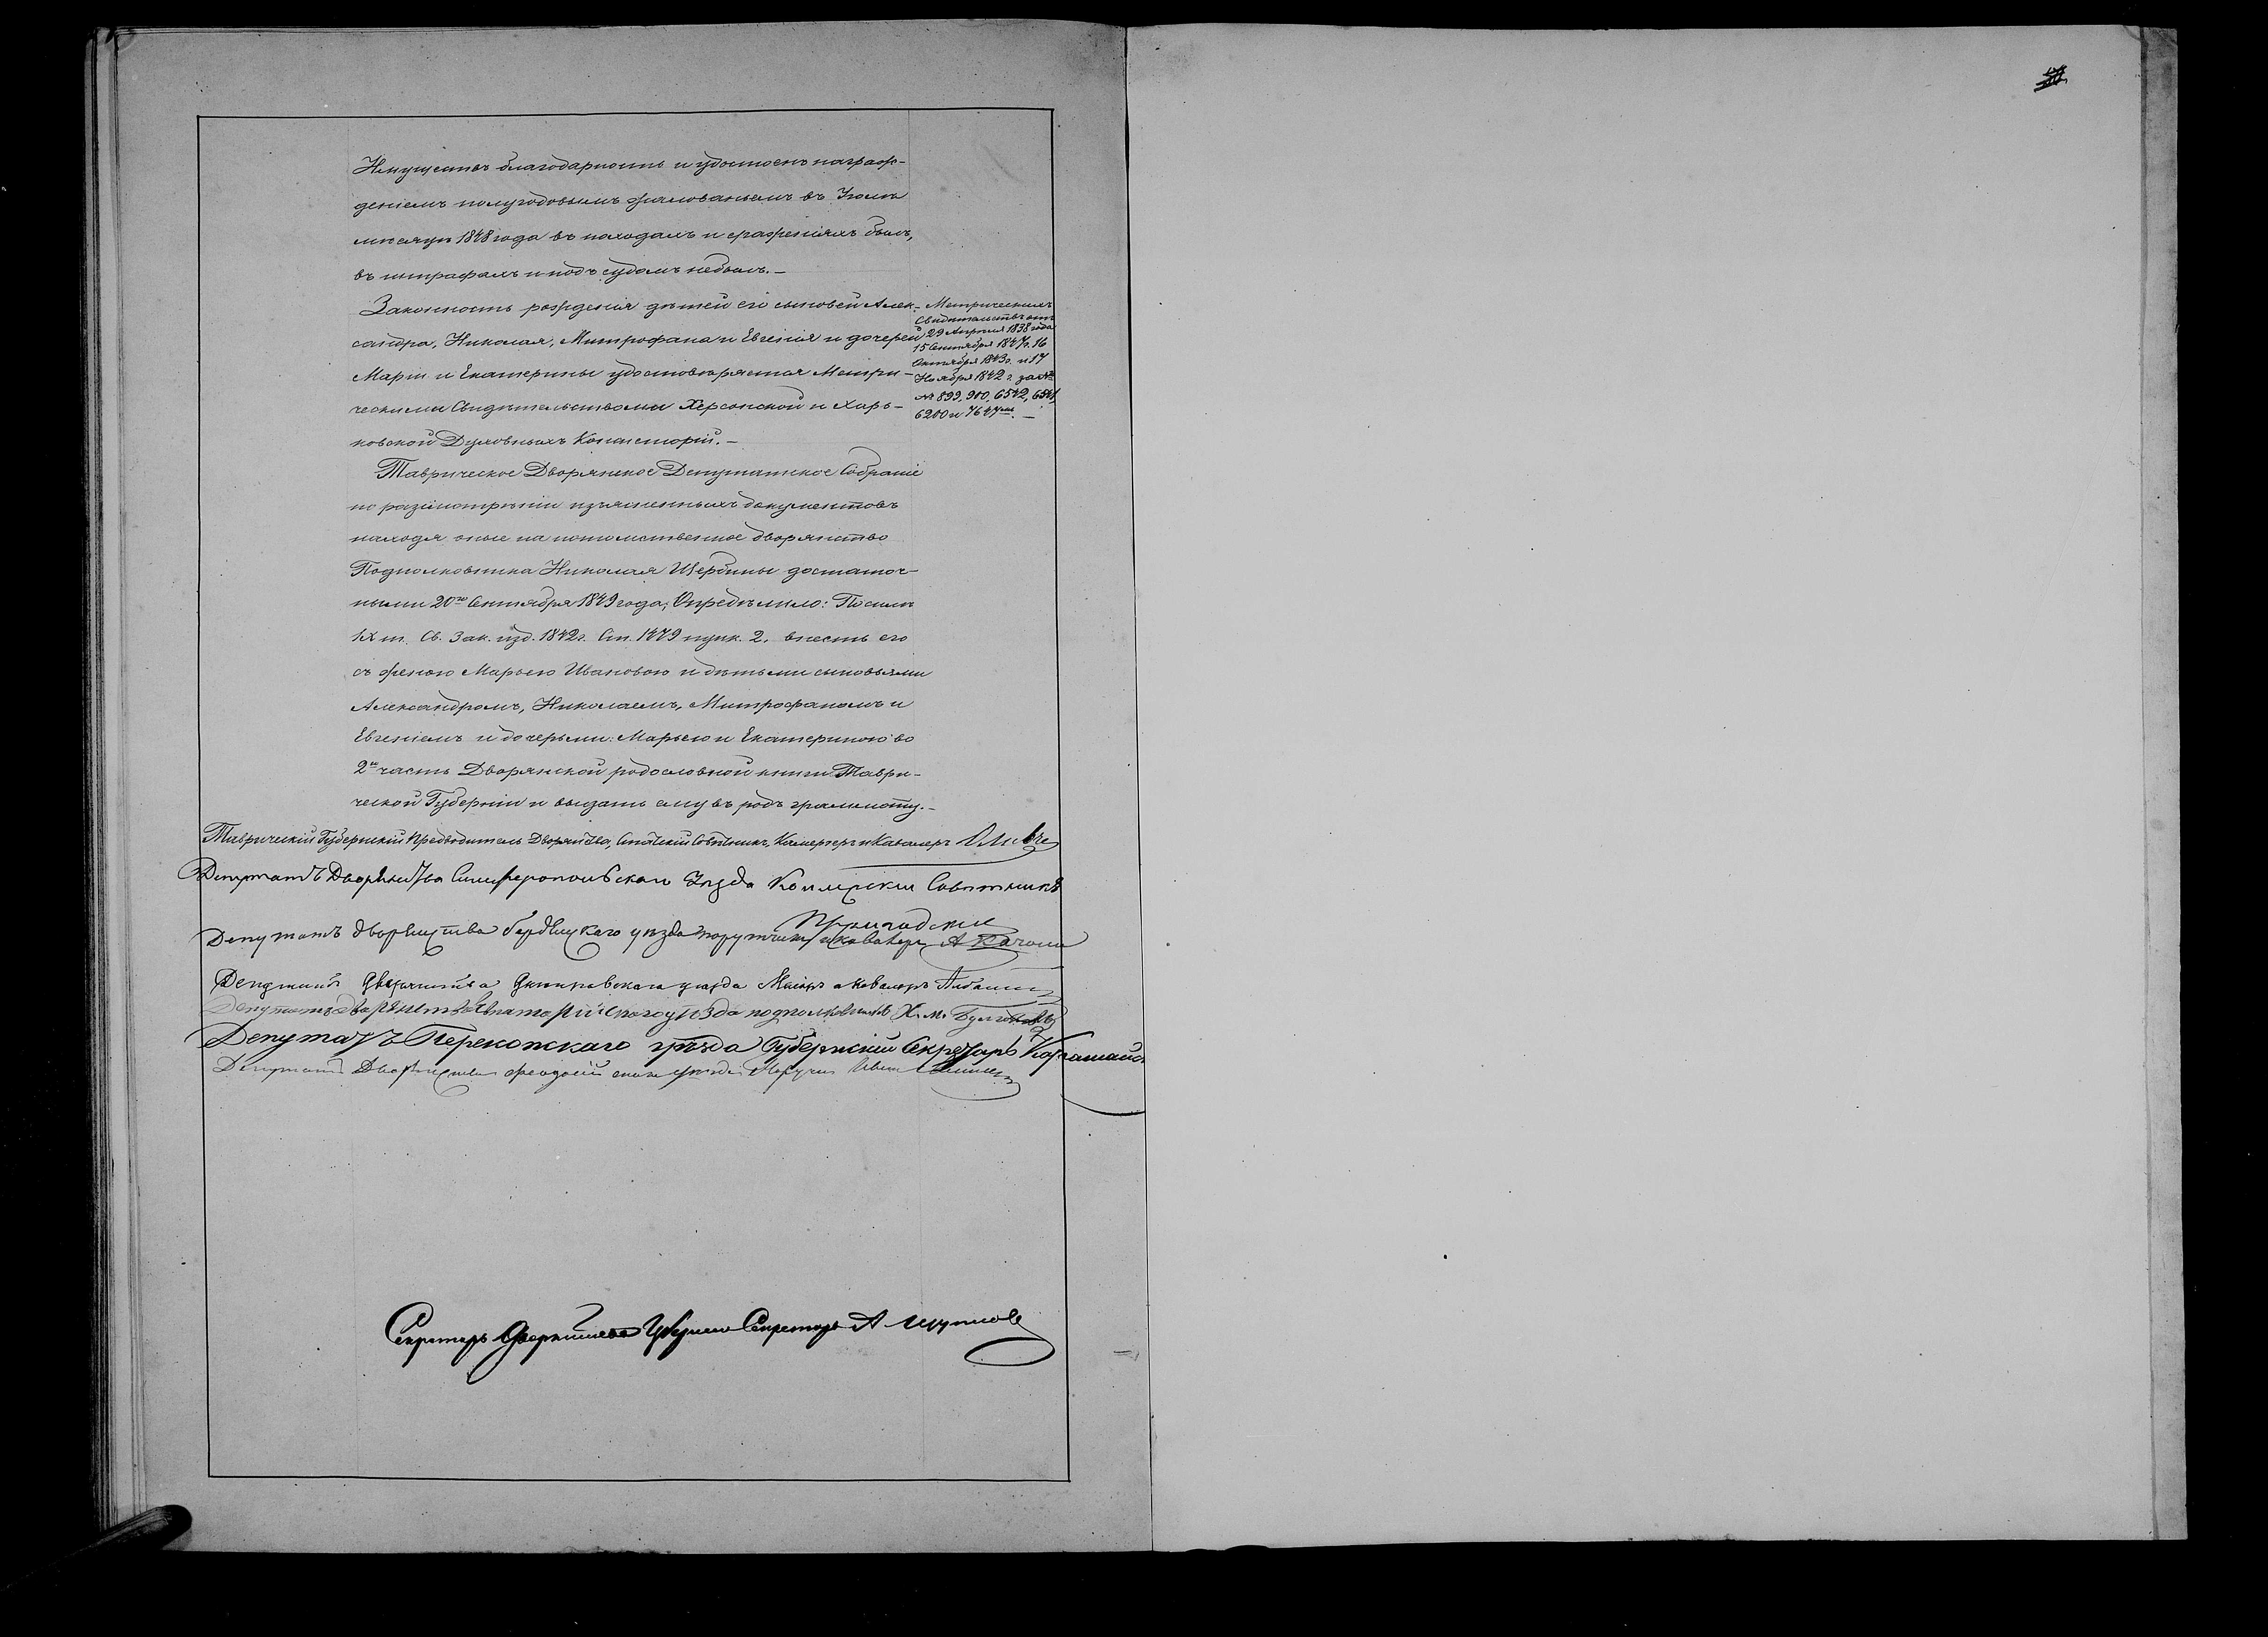 Имуществъ благодарность и удостоенъ награж-
деніемъ полугодовымъ жалованьемъ въ Іюлѣ
мѣсяцѣ 1848 года въ походахъ и сраженіяхъ былъ,
въ штрафахъ и подъ судомъ небылъ.—
Законность рожденія дѣтей его сыновей Алек-
сандра, Николая, Митрофана и Евгенія и дочерей
Маріи и Екатерины удостовѣряется Метри-
ческими Свидѣтельствами Херсонской и Харь-
ковской Духовныхъ Консисторій.—
Метрическихъ
Свидѣтельствъ отъ
29 Апрѣля 1838 года
15 Сентября 1847г. 16
Октября 1843г. и 17
Ноября 1842 г. за №
№ 899, 900, 6542, 6541,
6200 и 7647
Таврическое Дворянское Депутатское Собраніе
по разсмотрѣніи изъясненныхъ документовъ
находя оные на потомственное дворянство
Подполковника Николая Щербины достаточ-
ными 20го Сентября 1849 года, Опредѣлило: По силѣ
IX т. Св. Зак. изд. 1842г. Ст. 1479 пунк. 2. внесть его
съ женою Марьею Ивановою и дѣтьми сыновьями
Александромъ, Николаемъ, Митрофаномъ и
Евгеніемъ и дочерьми: Марьею и Екатериною во
2ю часть Дворянской родословной книги Таври-
ческой Губерніи и выдать ему въ родъ грамматту.—
Таврическій Губернскій Предводитель Дворянства, Статскій Совѣтникъ, Камергеръ и Кавалеръ
Депутатъ Дворянства Симферопольскаго Уѣзда Совѣтникъ
Депутатъ дворянства бердянскаго уѣзда порутчикъ и кавалеръ А
Депутатъ Дворянства Днепровскаго уѣзда Маіоръ и Кавалеръ
Депутатъ дворянства Евпаторійскаго уѣзда подполковникъ
Депутатъ Перекопскаго уѣзда Губернскій Секретарь
Депутатъ Дворянства феодосійскаго уѣзда
Секретарь Дворянства Секретарь А